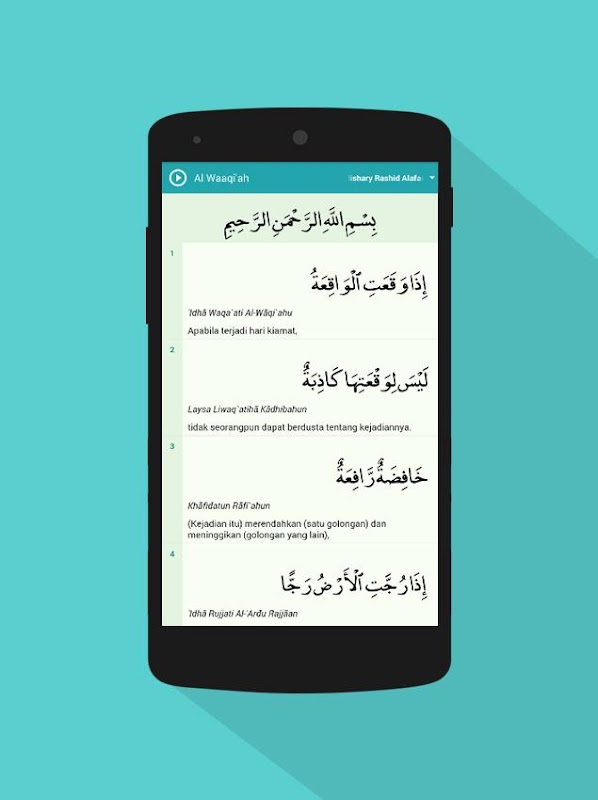 Al Waaqi'ah
ishary Rashid Alafa
بِسْمِ اللَّهِ الرَّحْمَنِ الرَّحِيمِ
1
إِذَا وَقَعَتِ ٱلْوَاقِعَةُ
'Idhā Waqa`ati Al-Wāqi`ahu
Apabila terjadi hari kiamat,
2
لَيْسَ لِوَقْعَتِهَا كَاذِبَةٌ
Laysa Liwaq`atihā Kādhibahun
tidak seorangpun dapat berdusta tentang kejadiannya.
3
خَافِضَةٌ رَّافِعَةٌ
Khāfiđatun Rāfi`ahun
(Kejadian itu) merendahkan (satu golongan) dan
meninggikan (golongan yang lain),
4
إِذَا رُجَّتِ ٱلْأَرْضُ رَجًّا
'Idhā Rujjati Al-'Arđu Rajjāan